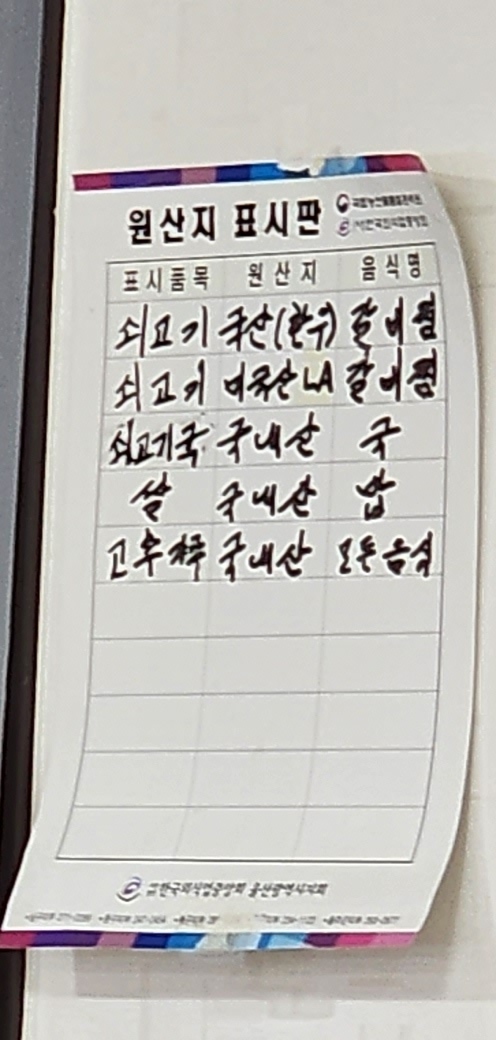 원산지 표시판
국립농산물품질관리원
(사)한국외식업중앙회
표시품목 원산지 음식명
쇠고기 국산(한우) 갈비찜
쇠고기 미국산LA 갈비찜
쇠고기국 국내산 국
쌀 국내산 밥
고추가루 국내산 모든음식
한국외식업중앙회 울산광역시지회